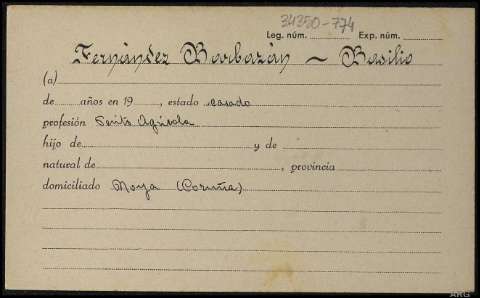 34350-774
Leg. núm. Exp. núm.
Fernández Barbazán - Basilio
(a)
de años en 19 , estado casado
profesión Perito Agrícola
hijo de y de
natural de , provincia
domiciliado Noya (Coruña)
ARG